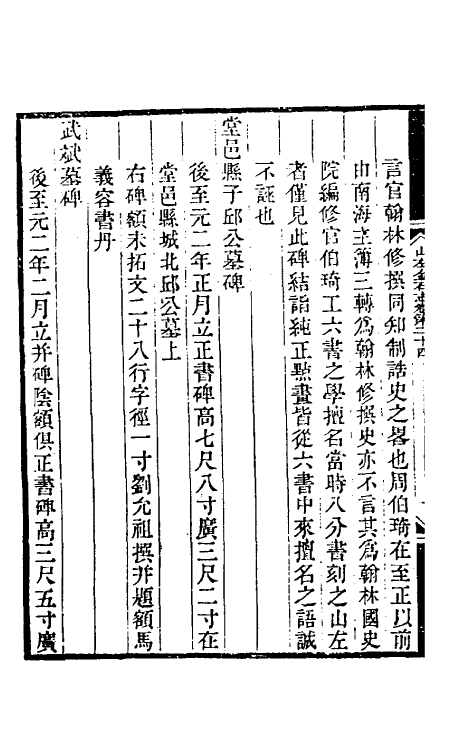 言官翰林修撰同知制誥史之畧也周伯琦在至正以前
由南海主簿三轉爲翰林修撰史亦不言其爲翰林國史
院編修官伯琦工六書之學擅名當時八分書刻之山左
者僅見此碑結詣純正㸃畫皆從六書中來擅名之語誠
不誣也
堂邑縣子邱公墓碑
後至元二年正月立正書碑高七尺八寸廣三尺二寸在
堂邑縣城北邱公墓上
右碑額未拓文二十八行字徑一寸劉允祖撰并題額馬
義容書丹
武斌墓碑
後至元二年二月立并碑陰額俱正書碑高三尺五寸廣